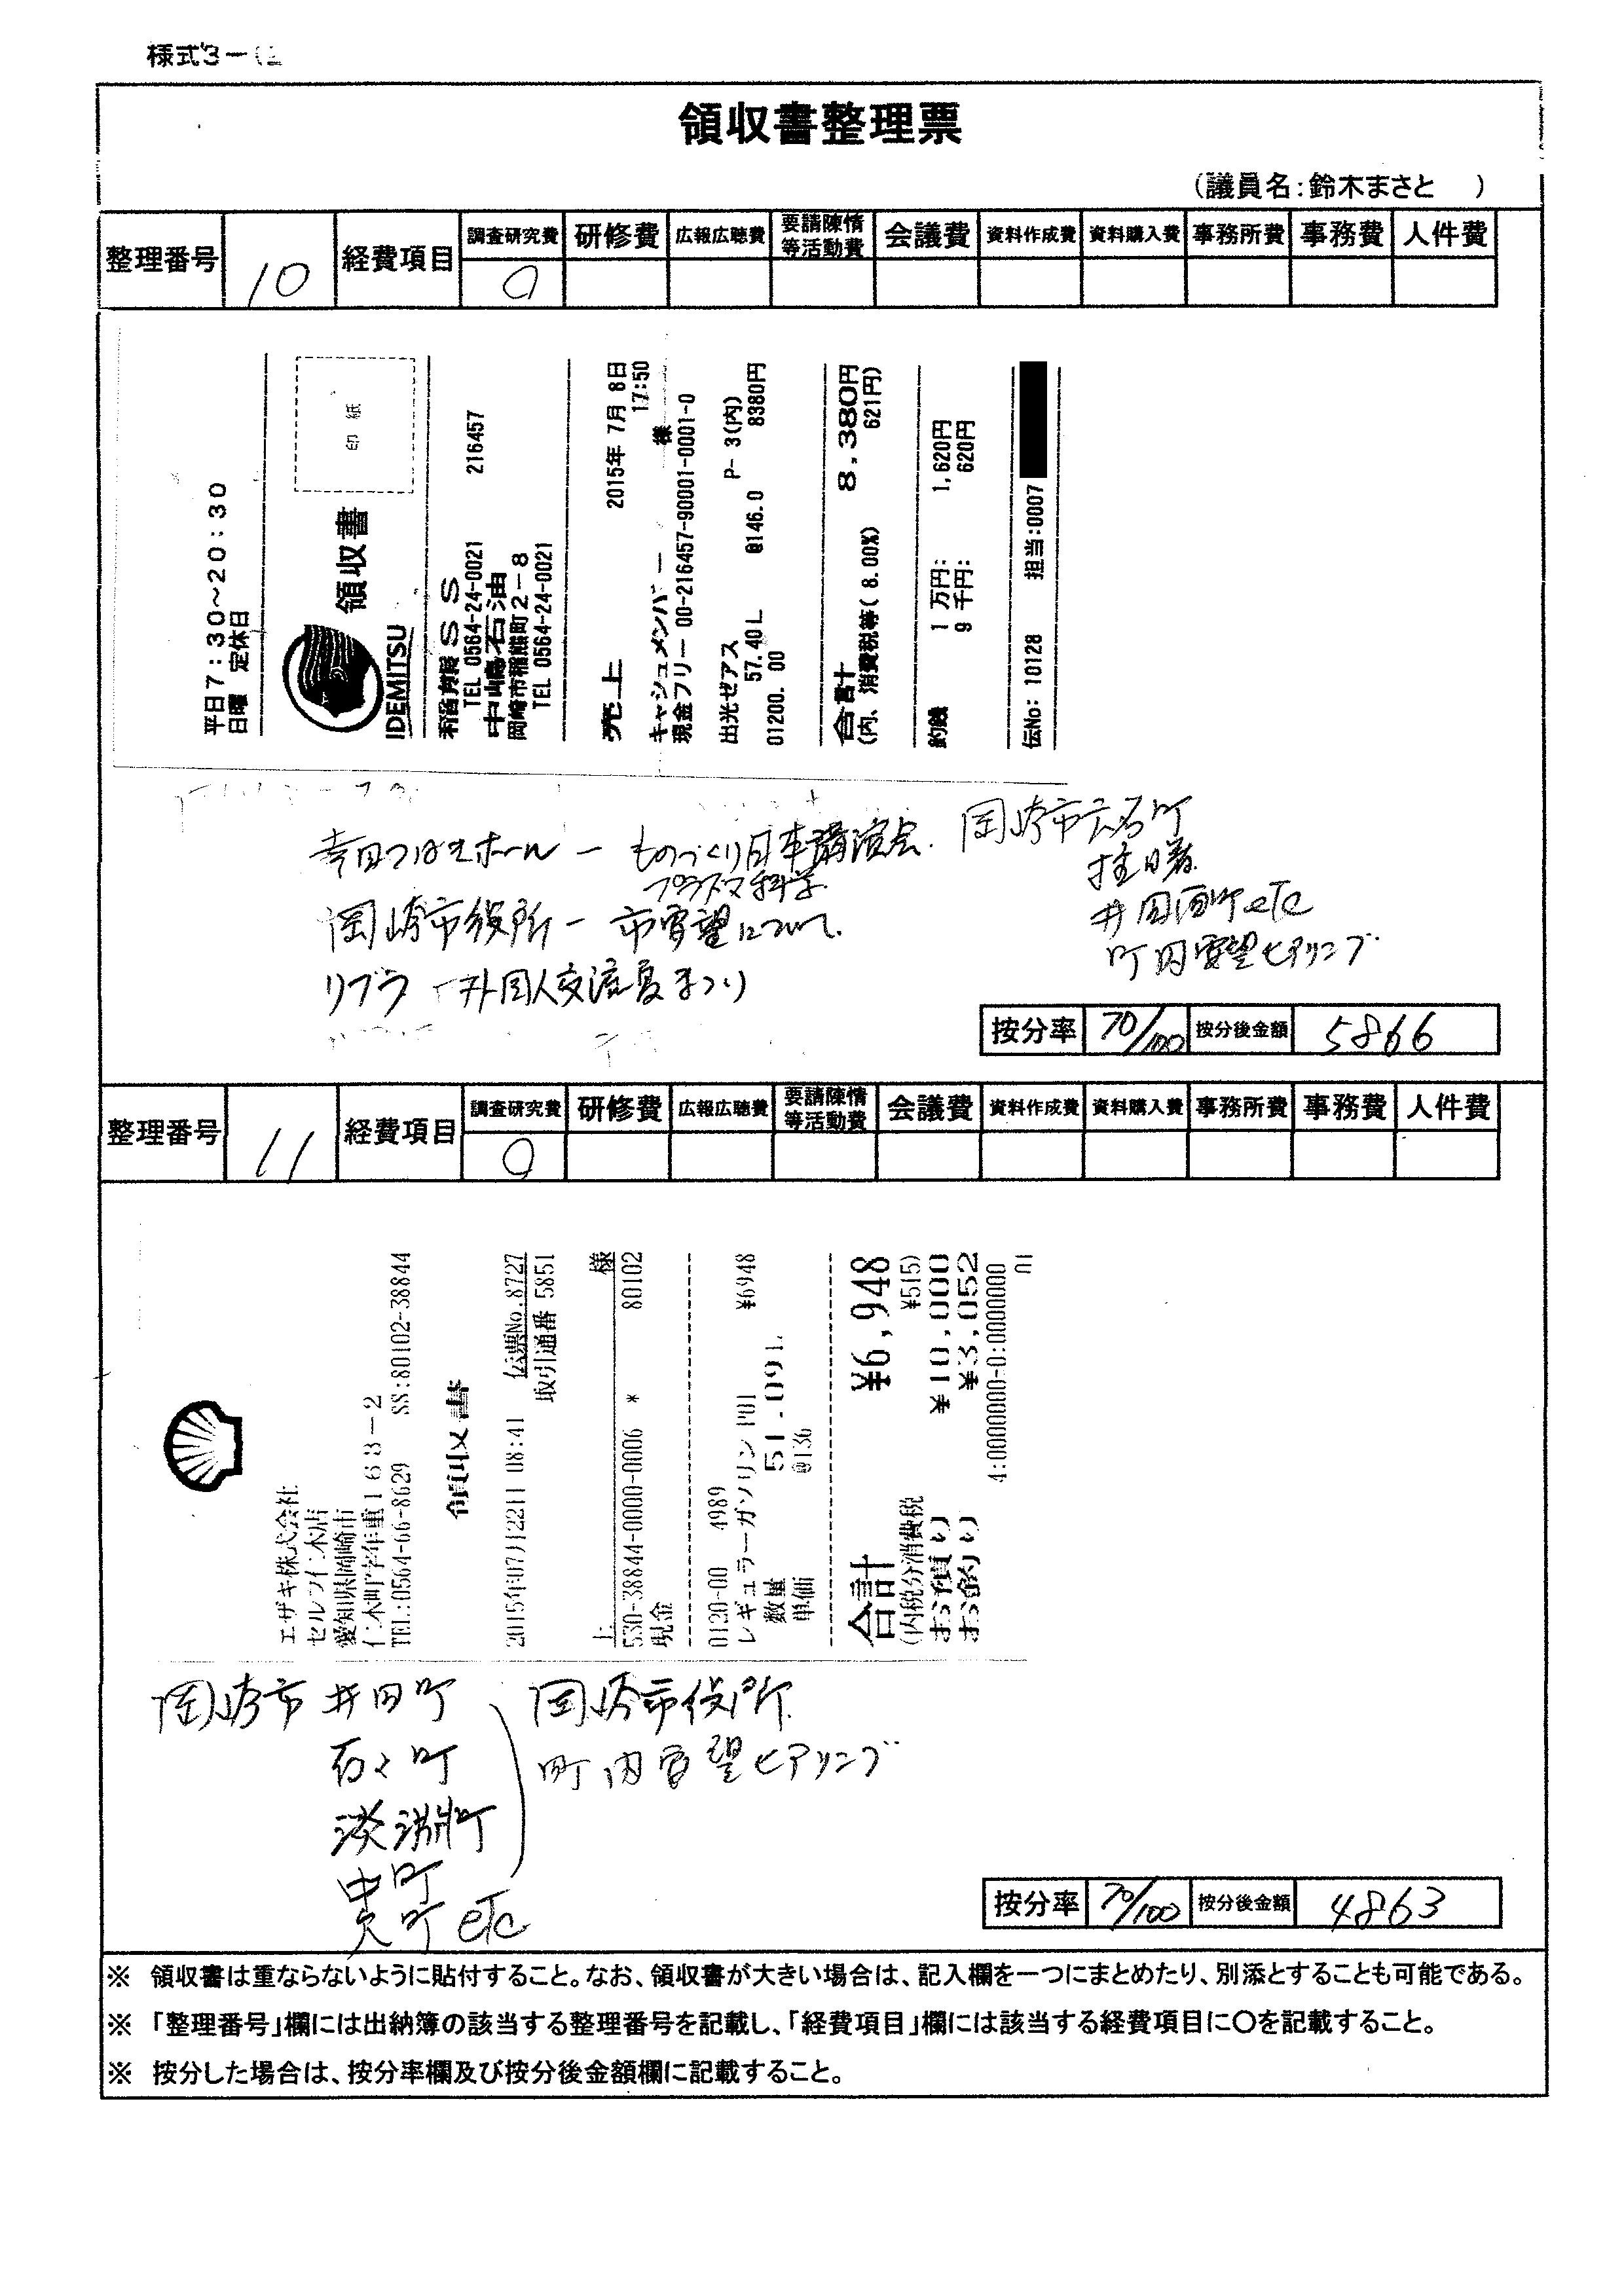 様式3-(2
領収書整理票
(議員名:鈴木まさと )
整理番号 10 経費項目 調査研究費 研修費 広報広聴費 要請陳情等活動費 会議費 資料作成費 資料購入費 事務所費 事務費 人件費
○
平日7:30~20:30
日曜 定休日
印紙
領収書
IDEMITSU
SS 216457
TEL 0564-24-0021
中嶋石油
岡崎市稲熊町2-8
TEL 0564-24-0021
売上 2015年 7月 8日
17:50
キャッシュメンバー 様
現金フリー 00-216457-90001-0001-0
出光ゼアス P- 3(内)
57.40L @146.0 8380円
01200. 00
合計 8,380円
(内、消費税等( 8.00%) 621円)
1 万円: 1,620円
釣銭 9 千円: 620円
伝No: 10128 担当:0007
幸田つばきホール ー ものづくり日本講演会.
プラズマ科学
岡崎市役所 ー 市要望について.
リブラ ー 外国人交流夏まつり
岡崎市六名町
井田西町 etc
町内要望ヒアリング
按分率 70/100 按分後金額 5866
整理番号 11 経費項目 調査研究費 研修費 広報広聴費 要請陳情等活動費 会議費 資料作成費 資料購入費 事務所費 事務費 人件費
○
エザキ株式会社
セルフ仁木店
愛知県岡崎市
仁木町字年重168-2
TEL:0564-66-8629 SS:80102-38844
領収書
2015年07月22日 08:41 伝票No.8727
取引通番 5851
上 様
530-38844-0000-0006 * 80102
現金
0120-00 4989
レギュラーガソリン P01 ¥6948
数量 51.09L
単価 @136
合計 ¥6,948
(内税分消費税 ¥515)
お預り ¥10,000
お釣り ¥3,052
4:0000000-0:0000000
01
岡崎市 井田町
石々町
淡渕町
東町
大町 etc
岡崎市役所
町内要望ヒアリング
按分率 70/100 按分後金額 4863
※ 領収書は重ならないように貼付すること。なお、領収書が大きい場合は、記入欄を一つにまとめたり、別添とすることも可能である。
※ 「整理番号」欄には出納簿の該当する整理番号を記載し、「経費項目」欄には該当する経費項目に○を記載すること。
※ 按分した場合は、按分率欄及び按分後金額欄に記載すること。